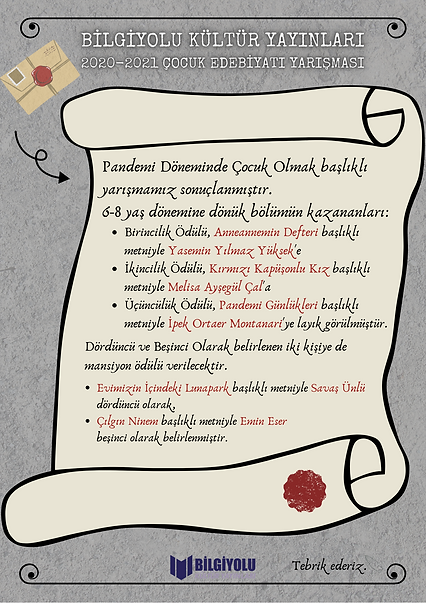 BİLGİYOLU KÜLTÜR YAYINLARI
2020-2021 ÇOCUK EDEBİYATI YARIŞMASI
Pandemi Döneminde Çocuk Olmak başlıklı
yarışmamız sonuçlanmıştır.
6-8 yaş dönemine dönük bölümün kazananları:
• Birincilik Ödülü, Anneannemin Defteri başlıklı
metniyle Yasemin Yılmaz Yüksek'e
• İkincilik Ödülü, Kırmızı Kapüşonlu Kız başlıklı
metniyle Melisa Ayşegül Çal'a
• Üçüncülük Ödülü, Pandemi Günlükleri başlıklı
metniyle İpek Ortaer Montanari'ye layık görülmüştür.
Dördüncü ve Beşinci Olarak belirlenen iki kişiye de
mansiyon ödülü verilecektir.
• Evimizin İçindeki Lunapark başlıklı metniyle Savaş Ünlü
dördüncü olarak,
• Çılgın Ninem başlıklı metniyle Emin Eser
beşinci olarak belirlenmiştir.
BİLGİYOLU
Tebrik ederiz.